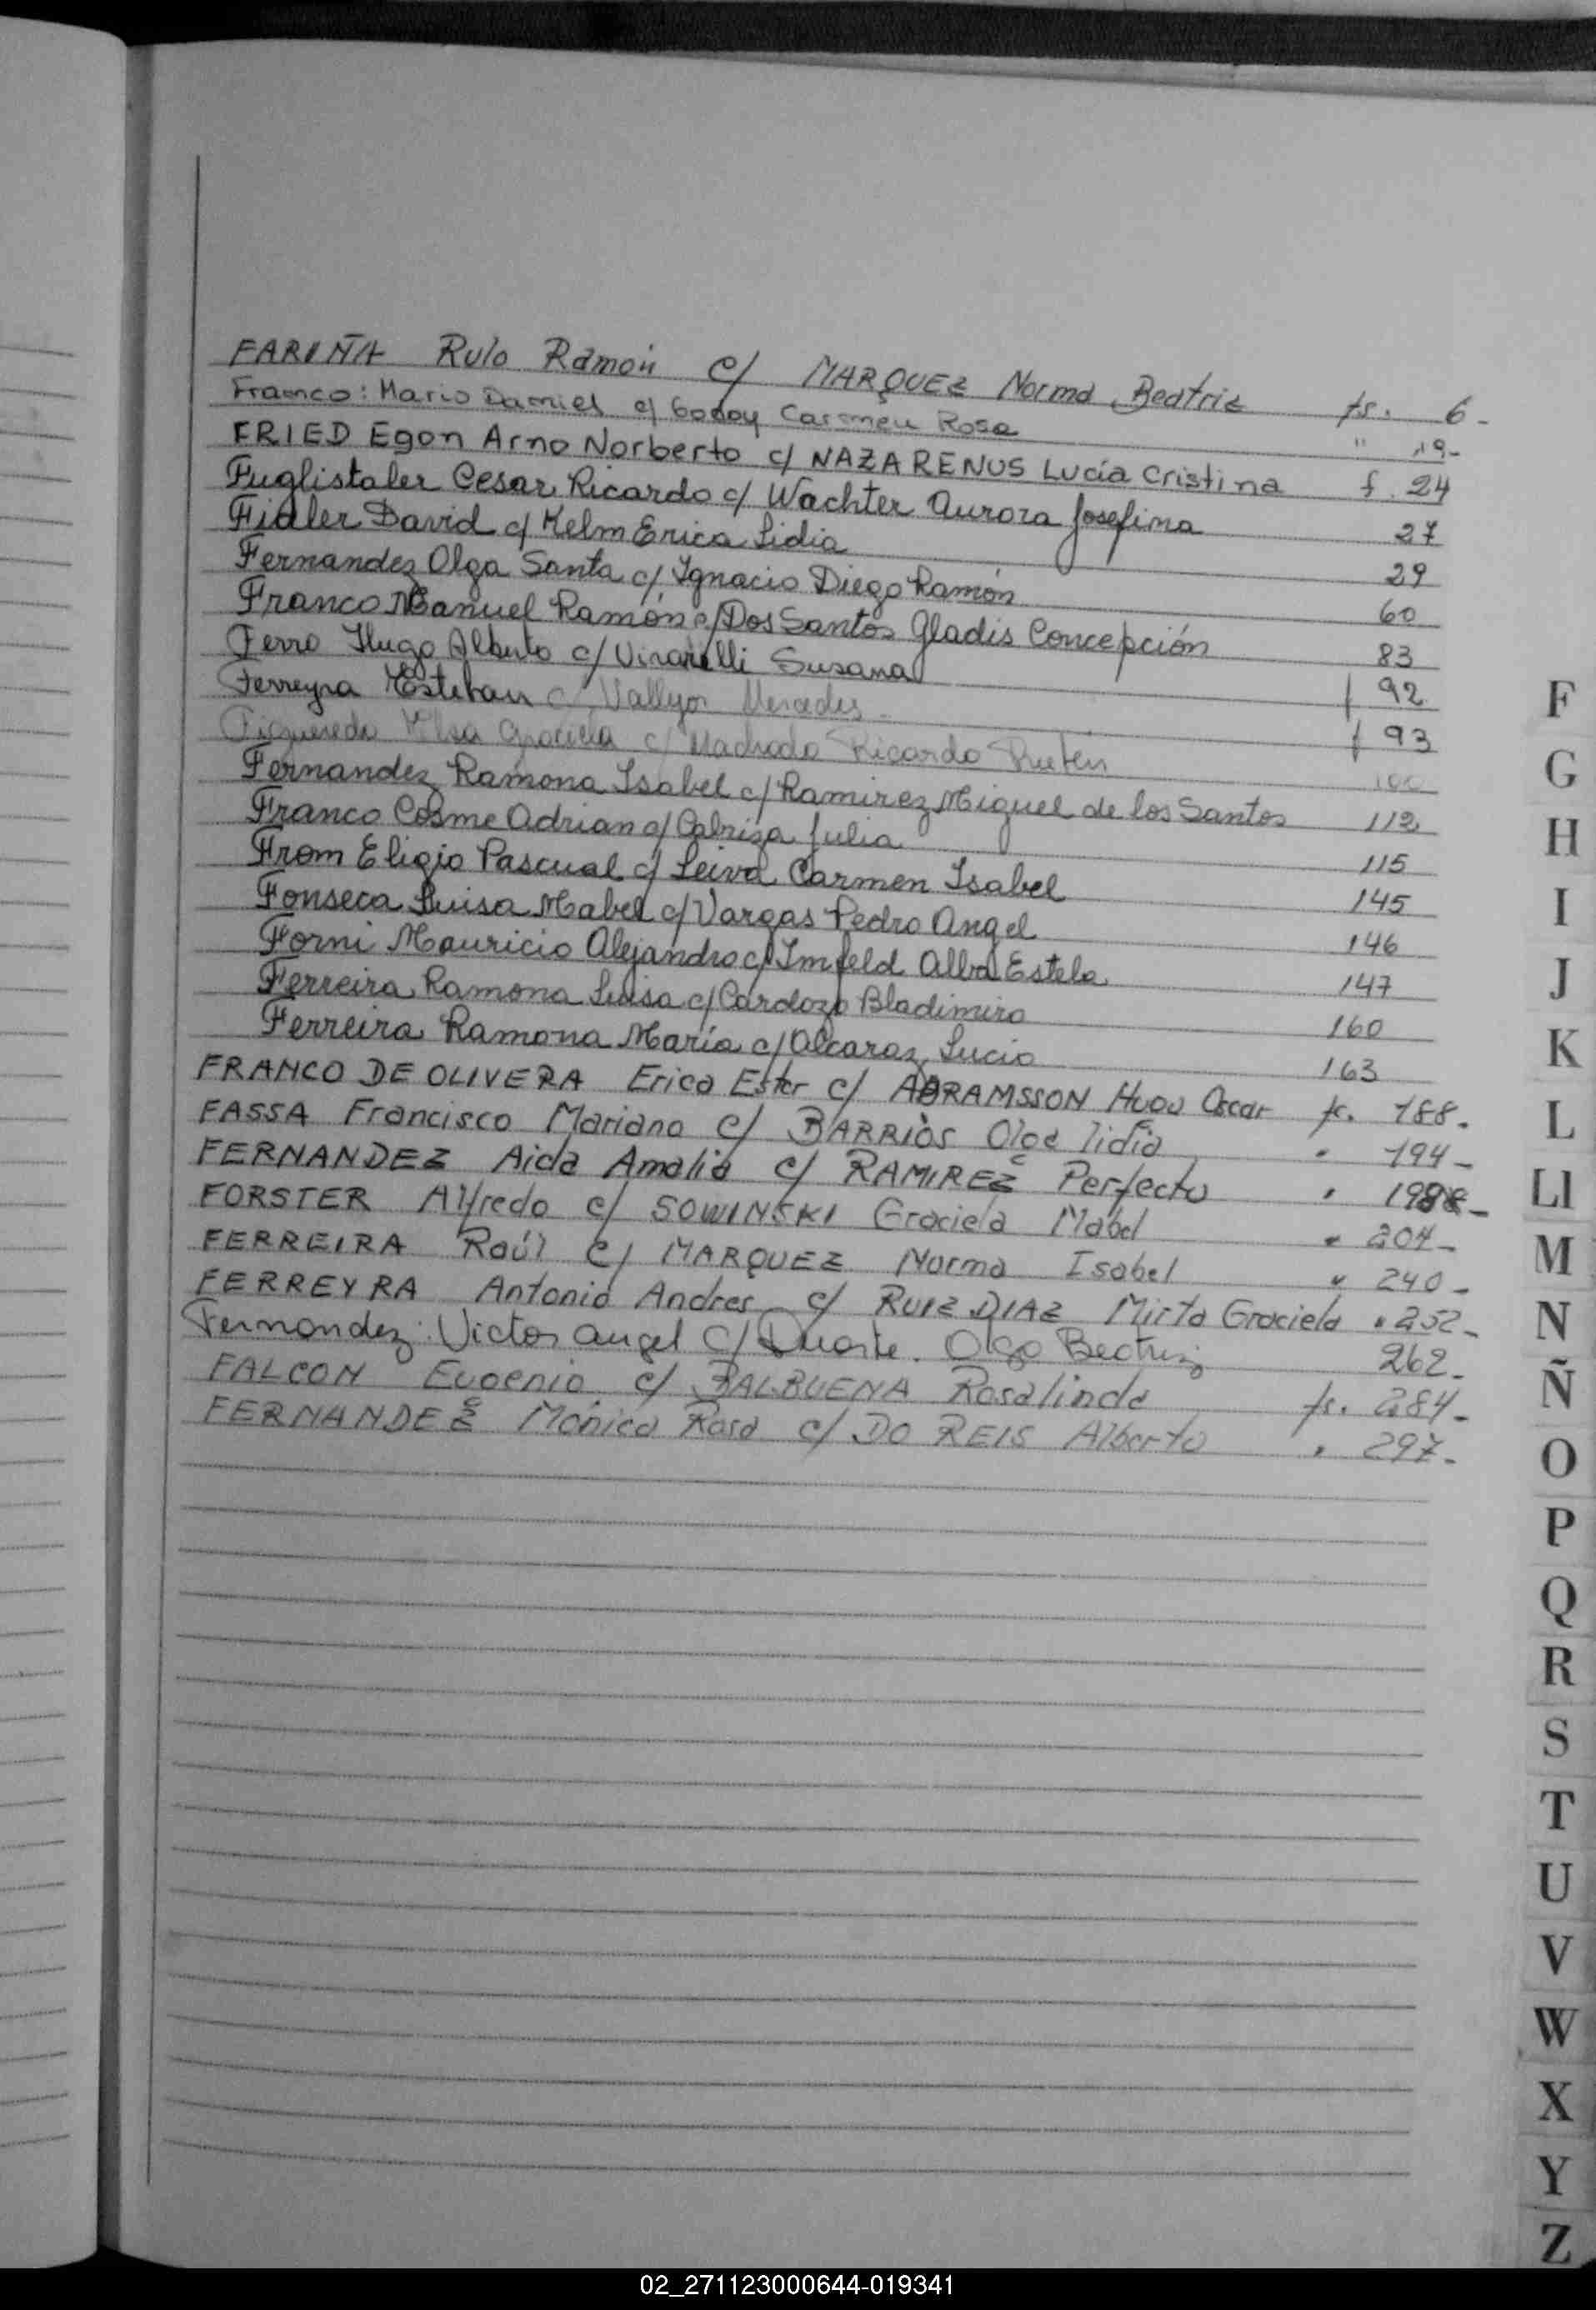 FARIÑA Rulo Ramón c/ MARQUEZ Norma Beatriz fs. 6-
Franco: Mario Daniel c/ Godoy Carmen Rosa " 19-
FRIED Egon Arno Norberto c/ NAZARENUS Lucía Cristina f. 24
Fuglistaler Cesar Ricardo c/ Wachter Aurora Josefina 27
Fialer David c/ Kelm Erica Lidia 29
Fernandez Olga Santa c/ Ignacio Diego Ramón 60
Franco Manuel Ramón c/ Dos Santos Gladis Concepción 83
Ferro Hugo Alberto c/ Susana f 92
Ferreyra Esteban c/ Vallejos Mercedes f 93
Figueredo Elsa Graciela c/ Machado Ricardo Rubén 100
Fernandez Ramona Isabel c/ Ramirez Miguel de los Santos 112
Franco Cosme Adrian c/ Cabriza Julia 115
From Eligio Pascual c/ Leiva Carmen Isabel 145
Fonseca Luisa Mabel c/ Vargas Pedro Angel 146
Forni Mauricio Alejandro c/ Imfeld Alba Estela 147
Ferreira Ramona Luisa c/ Cardozo Bladimiro 160
Ferreira Ramona María c/ Alcaraz Lucio 163
FRANCO DE OLIVERA Erica Ester c/ ABRAMSSON Hugo Oscar fs. 188.
FASSA Francisco Mariano c/ BARRIOS Olga lidia " 194-
FERNANDEZ Aida Amalia c/ RAMIREZ Perfecto " 198-
FORSTER Alfredo c/ SOWINSKI Graciela Mabel " 204-
FERREIRA Raúl c/ MARQUEZ Norma Isabel " 240-
FERREYRA Antonio Andres c/ RUIZ DIAZ Mirta Graciela " 252-
Fernandez: Victor angel c/ Duarte. Olga Beatriz 262-
FALCON Eugenio c/ BALBUENA Rosalinda fs. 284-
FERNANDEZ Mónica Rosa c/ DO REIS Alberto " 297-
F
G
H
I
J
K
L
Ll
M
N
Ñ
O
P
Q
R
S
T
U
V
W
X
Y
Z
02_271123000644-019341